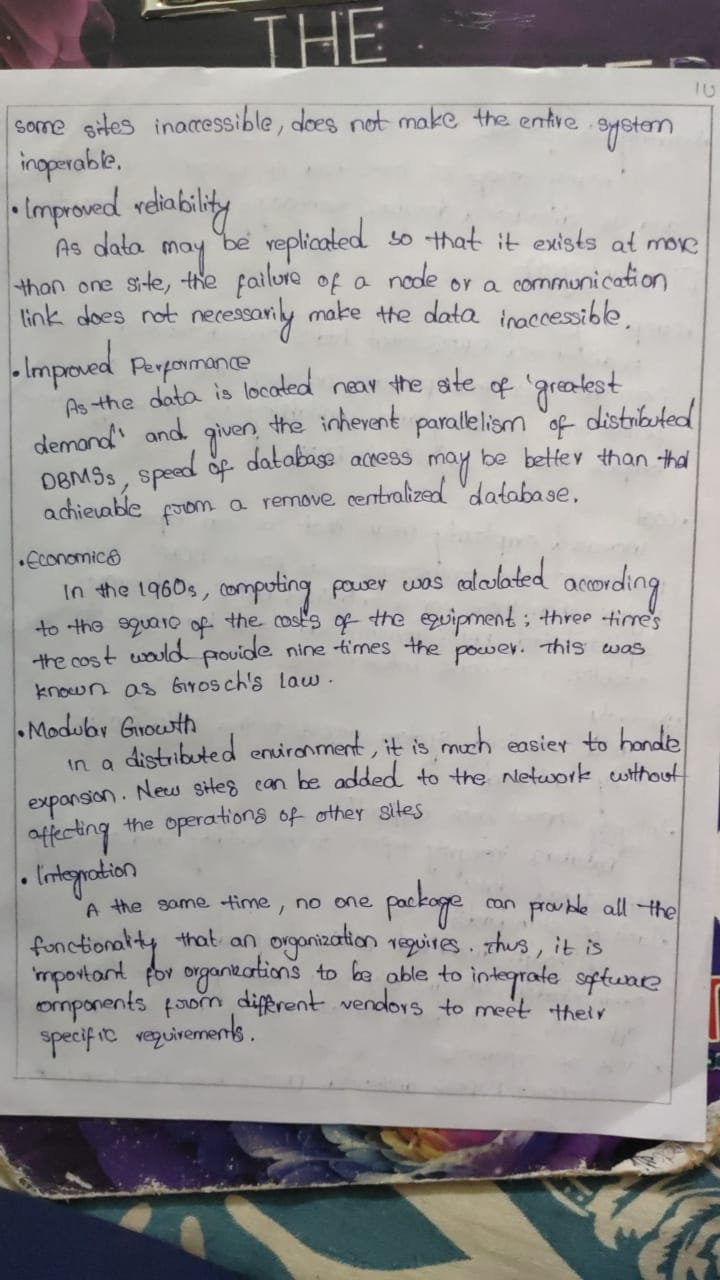 THE
10
some sites inaccessible, does not make the entire system
inoperable.
• Improved reliability
As data may be replicated so that it exists at more
than one site, the failure of a node or a communication
link does not necessarily make the data inaccessible.
• Improved Performance
As the data is located near the site of 'greatest
demand' and given, the inherent parallelism of distributed
DBMSs, speed of database access may be better than that
achievable from a remove centralized database.
• Economics
In the 1960s, computing power was calculated according
to the square of the costs of the equipment; three times
the cost would provide nine times the power. This was
known as Grosch's law.
• Modular Growth
In a distributed environment, it is much easier to handle
expansion. New sites can be added to the Network without
affecting the operations of other sites
• Integration
A the same time, no one package can provide all the
functionality that an organization requires. Thus, it is
important for organizations to be able to integrate software
omponents from different vendors to meet their
specific requirements.